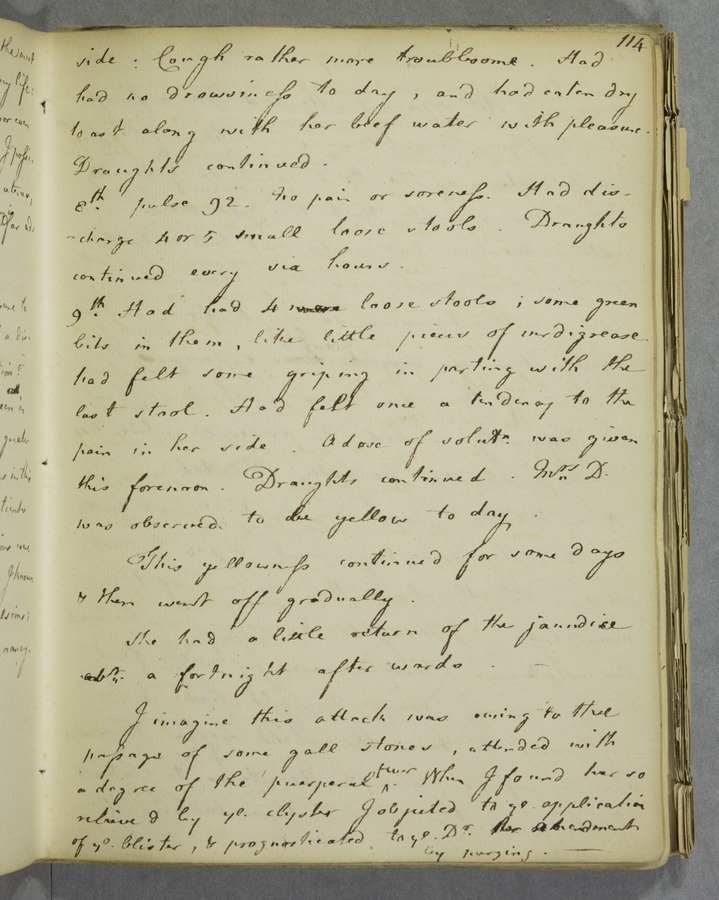 114
side : Cough rather more troublesome. Had
had no drowsiness to day, and had eaten dry
toast along with her beef water with pleasure.
Draughts continued.
8th. pulse 92. No pain or soreness. Had dis-
-charge 4 or 5 small loose stools. Draughts
continued every six hours.
9th Had had 4 loose stools ; some green
bits in them, like little pieces of verdigrease
had felt some griping in parting with the
last stool. Had felt once a tendency to the
pain in her side. A dose of solutn. was given
this forenoon. Draughts continued. Mrs D.
was observed to be yellow to day.
This yellowness continued for some days
& then went off gradually.
She had a little return of the jaundise
abt. a fortnight afterwards.
I imagine this attack was owing to the
passage of some gall stones, attended with
a degree of the puerperal fever. When I found her so
reliev'd by ye. clyster I objected to ye. application
of ye. blister, & prognosticated to ye. Dr. her amendment
by purging.